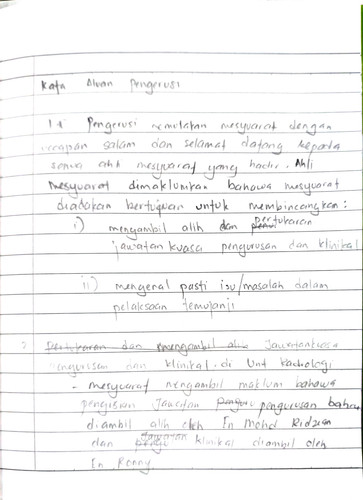 Kata Aluan Pengerusi
1. Pengerusi memulakan mesyuarat dengan
ucapan salam dan selamat datang kepada
semua ahli mesyuarat yang hadir. Ahli
mesyuarat dimaklumkan bahawa mesyuarat
diadakan bertujuan untuk membincangkan:
i) mengambil alih dan pertukaran
jawatankuasa pengurusan dan klinikal
ii) mengenal pasti isu/masalah dalam
pelaksaan temujanji
Pertukaran dan mengambil alih Jawatankuasa
pengurusan dan klinikal di Unit Radiologi
- mesyuarat mengambil maklum bahawa
pengisian Jawatan pengurusan
diambil alih oleh En Mohd Ridzuan
dan Jawatan klinikal diambil oleh
En Ronny